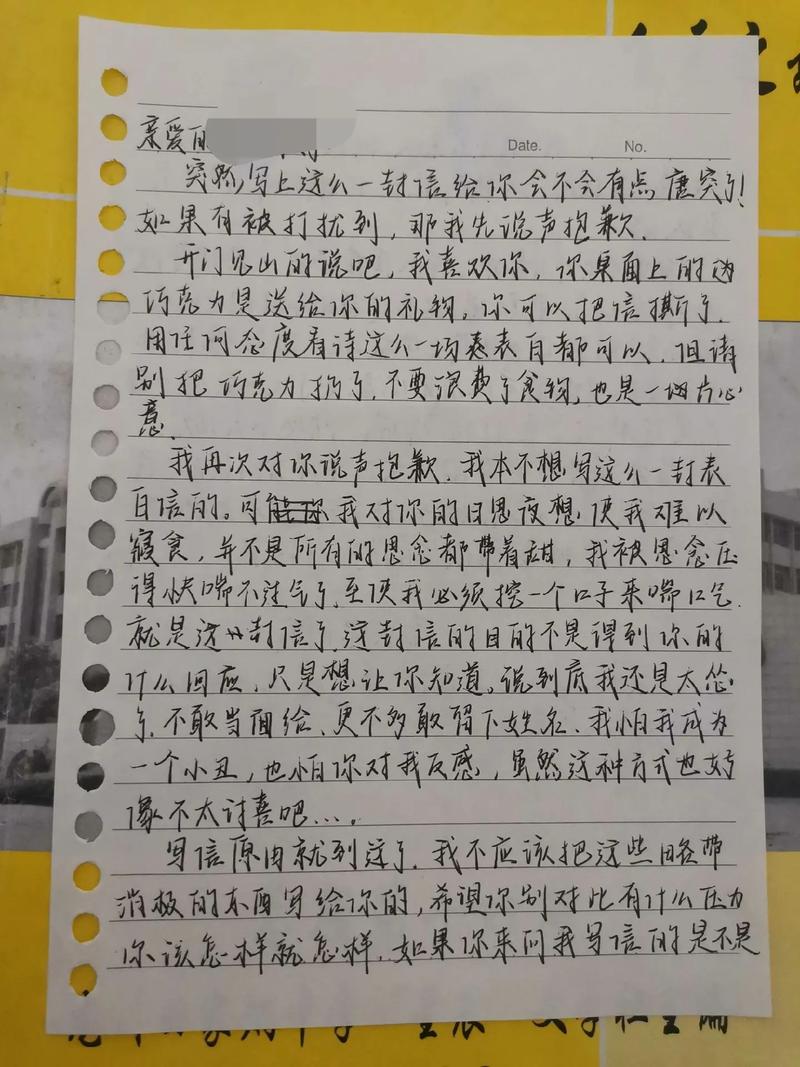 亲爱的
Date. No.
突然写上这么一封信给你会不会有点唐突了!
如果有被打扰到,那我先说声抱歉.
开门见山的说吧,我喜欢你,你桌面上的
巧克力是送给你的礼物,你可以把信撕了.
用任何态度看待这么一场表白都可以,但请
别把巧克力扔了.不要浪费了食物,也是一片心
意.
我再次对你说声抱歉.我本不想写这么一封表
白信的。可我对你的日思夜想使我难以
寝食,并不是所有的思念都带着甜,我被思念压
得快喘不过气了.至使我必须挖一个口子来喘口气.
就是这封信了.这封信的目的不是得到你的
什么回应,只是想让你知道。说到底我还是太怂
了.不敢当面给、更不敢留下姓名.我怕我成为
一个小丑,也怕你对我反感,虽然这种方式也好
像不太讨喜吧....。
写信原由就到这了.我不应该把这些略带
消极的东西写给你的,希望你别对此有什么压力
你该怎样就怎样.如果你来问我写信的是不是